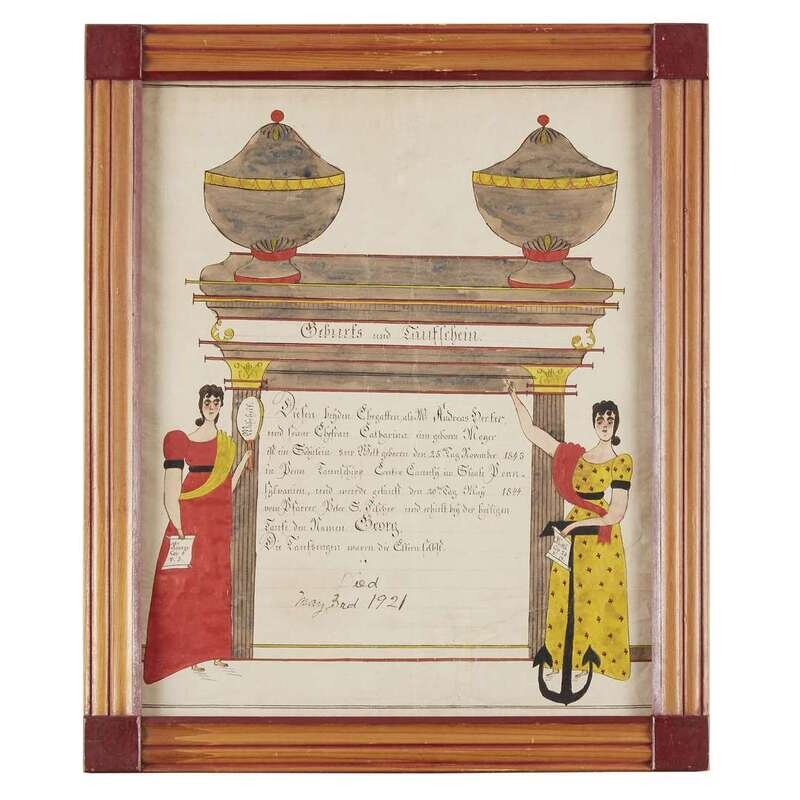 Geburts und Taufschein.
Wahrheit.
Diesen beyden Ehegatten, als M. Andreas Herter
und seine Ehefrau Catharina eine geborn Meyer
ist ein Söhnlein zur Welt geboren den 25 Tag November 1843
in Penn Taunschipp Centre Caunty im Staate Penn-
sylvanien, und wurde getauft den 20 Tag May 1844
vom Pfarrer Peter S. Fischer und erhielt bey der heiligen
Taufe den Namen Georg
Die Taufzeugen waren die Eltern selbst.
Died
May 3rd 1921